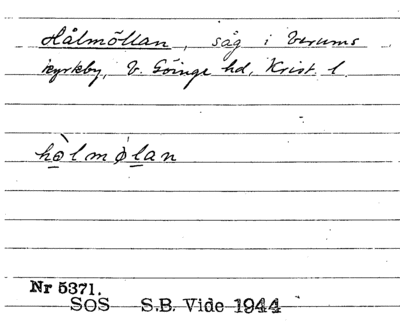 Hålmöllan, såg i Verums
kyrkby, V. Göinge hd, Krist. l.
hòlmølan
Nr 5371.
SOS S.B. Vide 1944